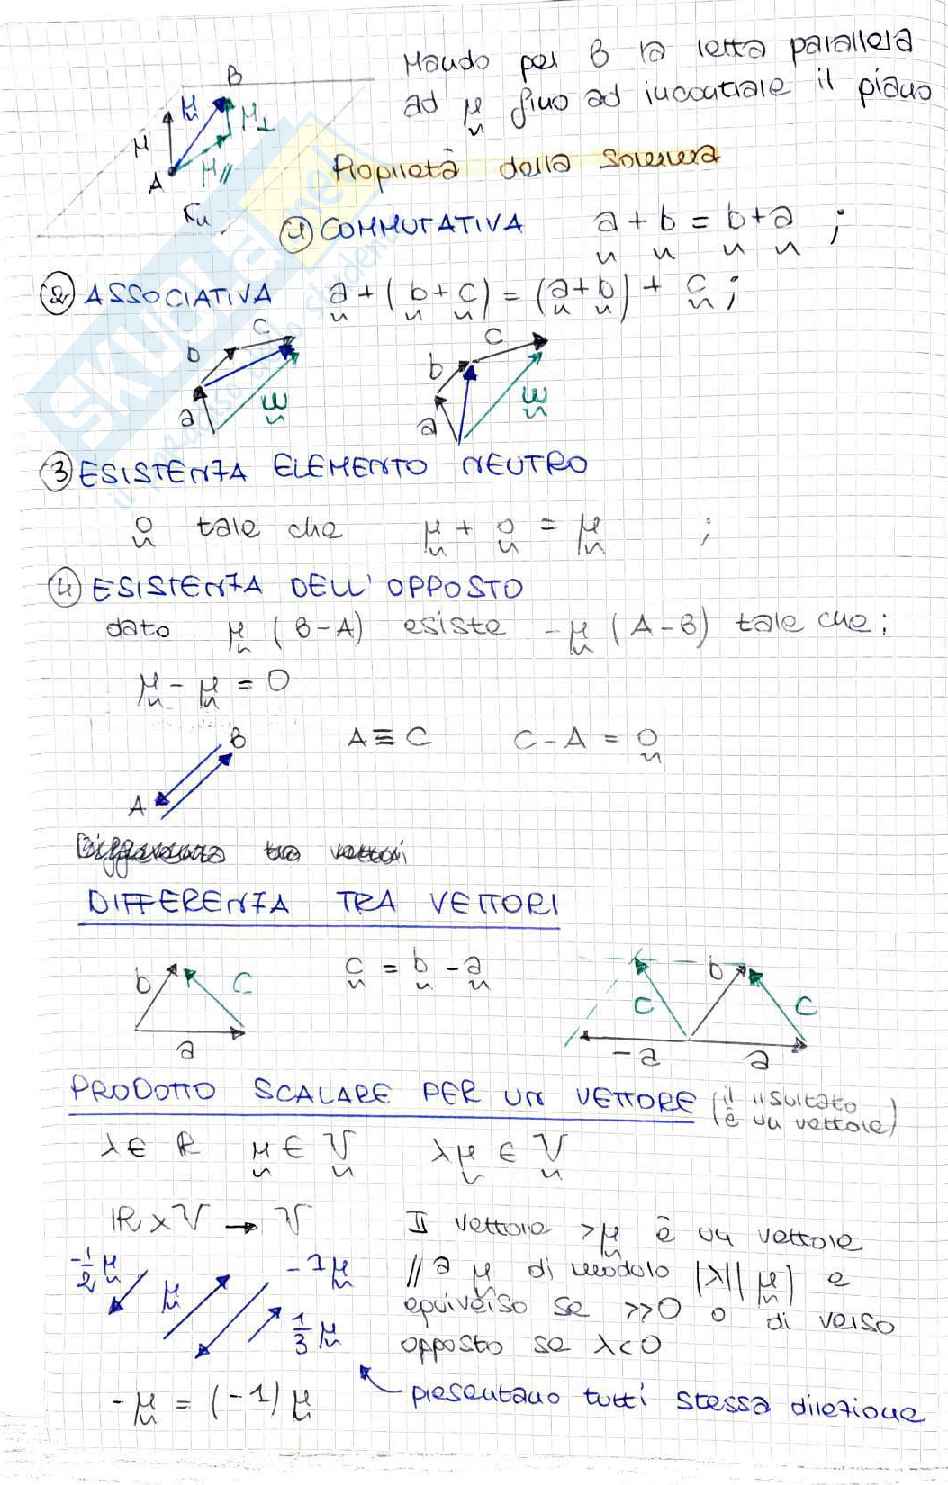 Mando per B la retta parallela
ad μ fino ad incontrare il piano
B
μ
μ⊥
μ
A
μ//
Proprietà della somma
① COMMUTATIVA a + b = b + a ;
② ASSOCIATIVA a + ( b + c ) = ( a + b ) + c ;
b c
a w
b c
a w
③ ESISTENZA ELEMENTO NEUTRO
0 tale che μ + 0 = μ ;
④ ESISTENZA DELL'OPPOSTO
dato μ ( B - A ) esiste - μ ( A - B ) tale che ;
μ - μ = 0
B
A ≡ C C - A = 0
A
Differenza tra vettori
DIFFERENZA TRA VETTORI
b c
a
c = b - a
c b c
- a a
PRODOTTO SCALARE PER UN VETTORE ( il risultato
è un vettore )
λ ∈ R μ ∈ V λμ ∈ V
R x V → V
Il vettore >μ è un vettore
// a μ di modulo |λ| |μ| e
equiverso se >>0 o di verso
opposto se λ<0
-1/2 μ
μ
-1μ
1/3 μ
- μ = (-1) μ
presentano tutti stessa direzione
SKUOLA.net